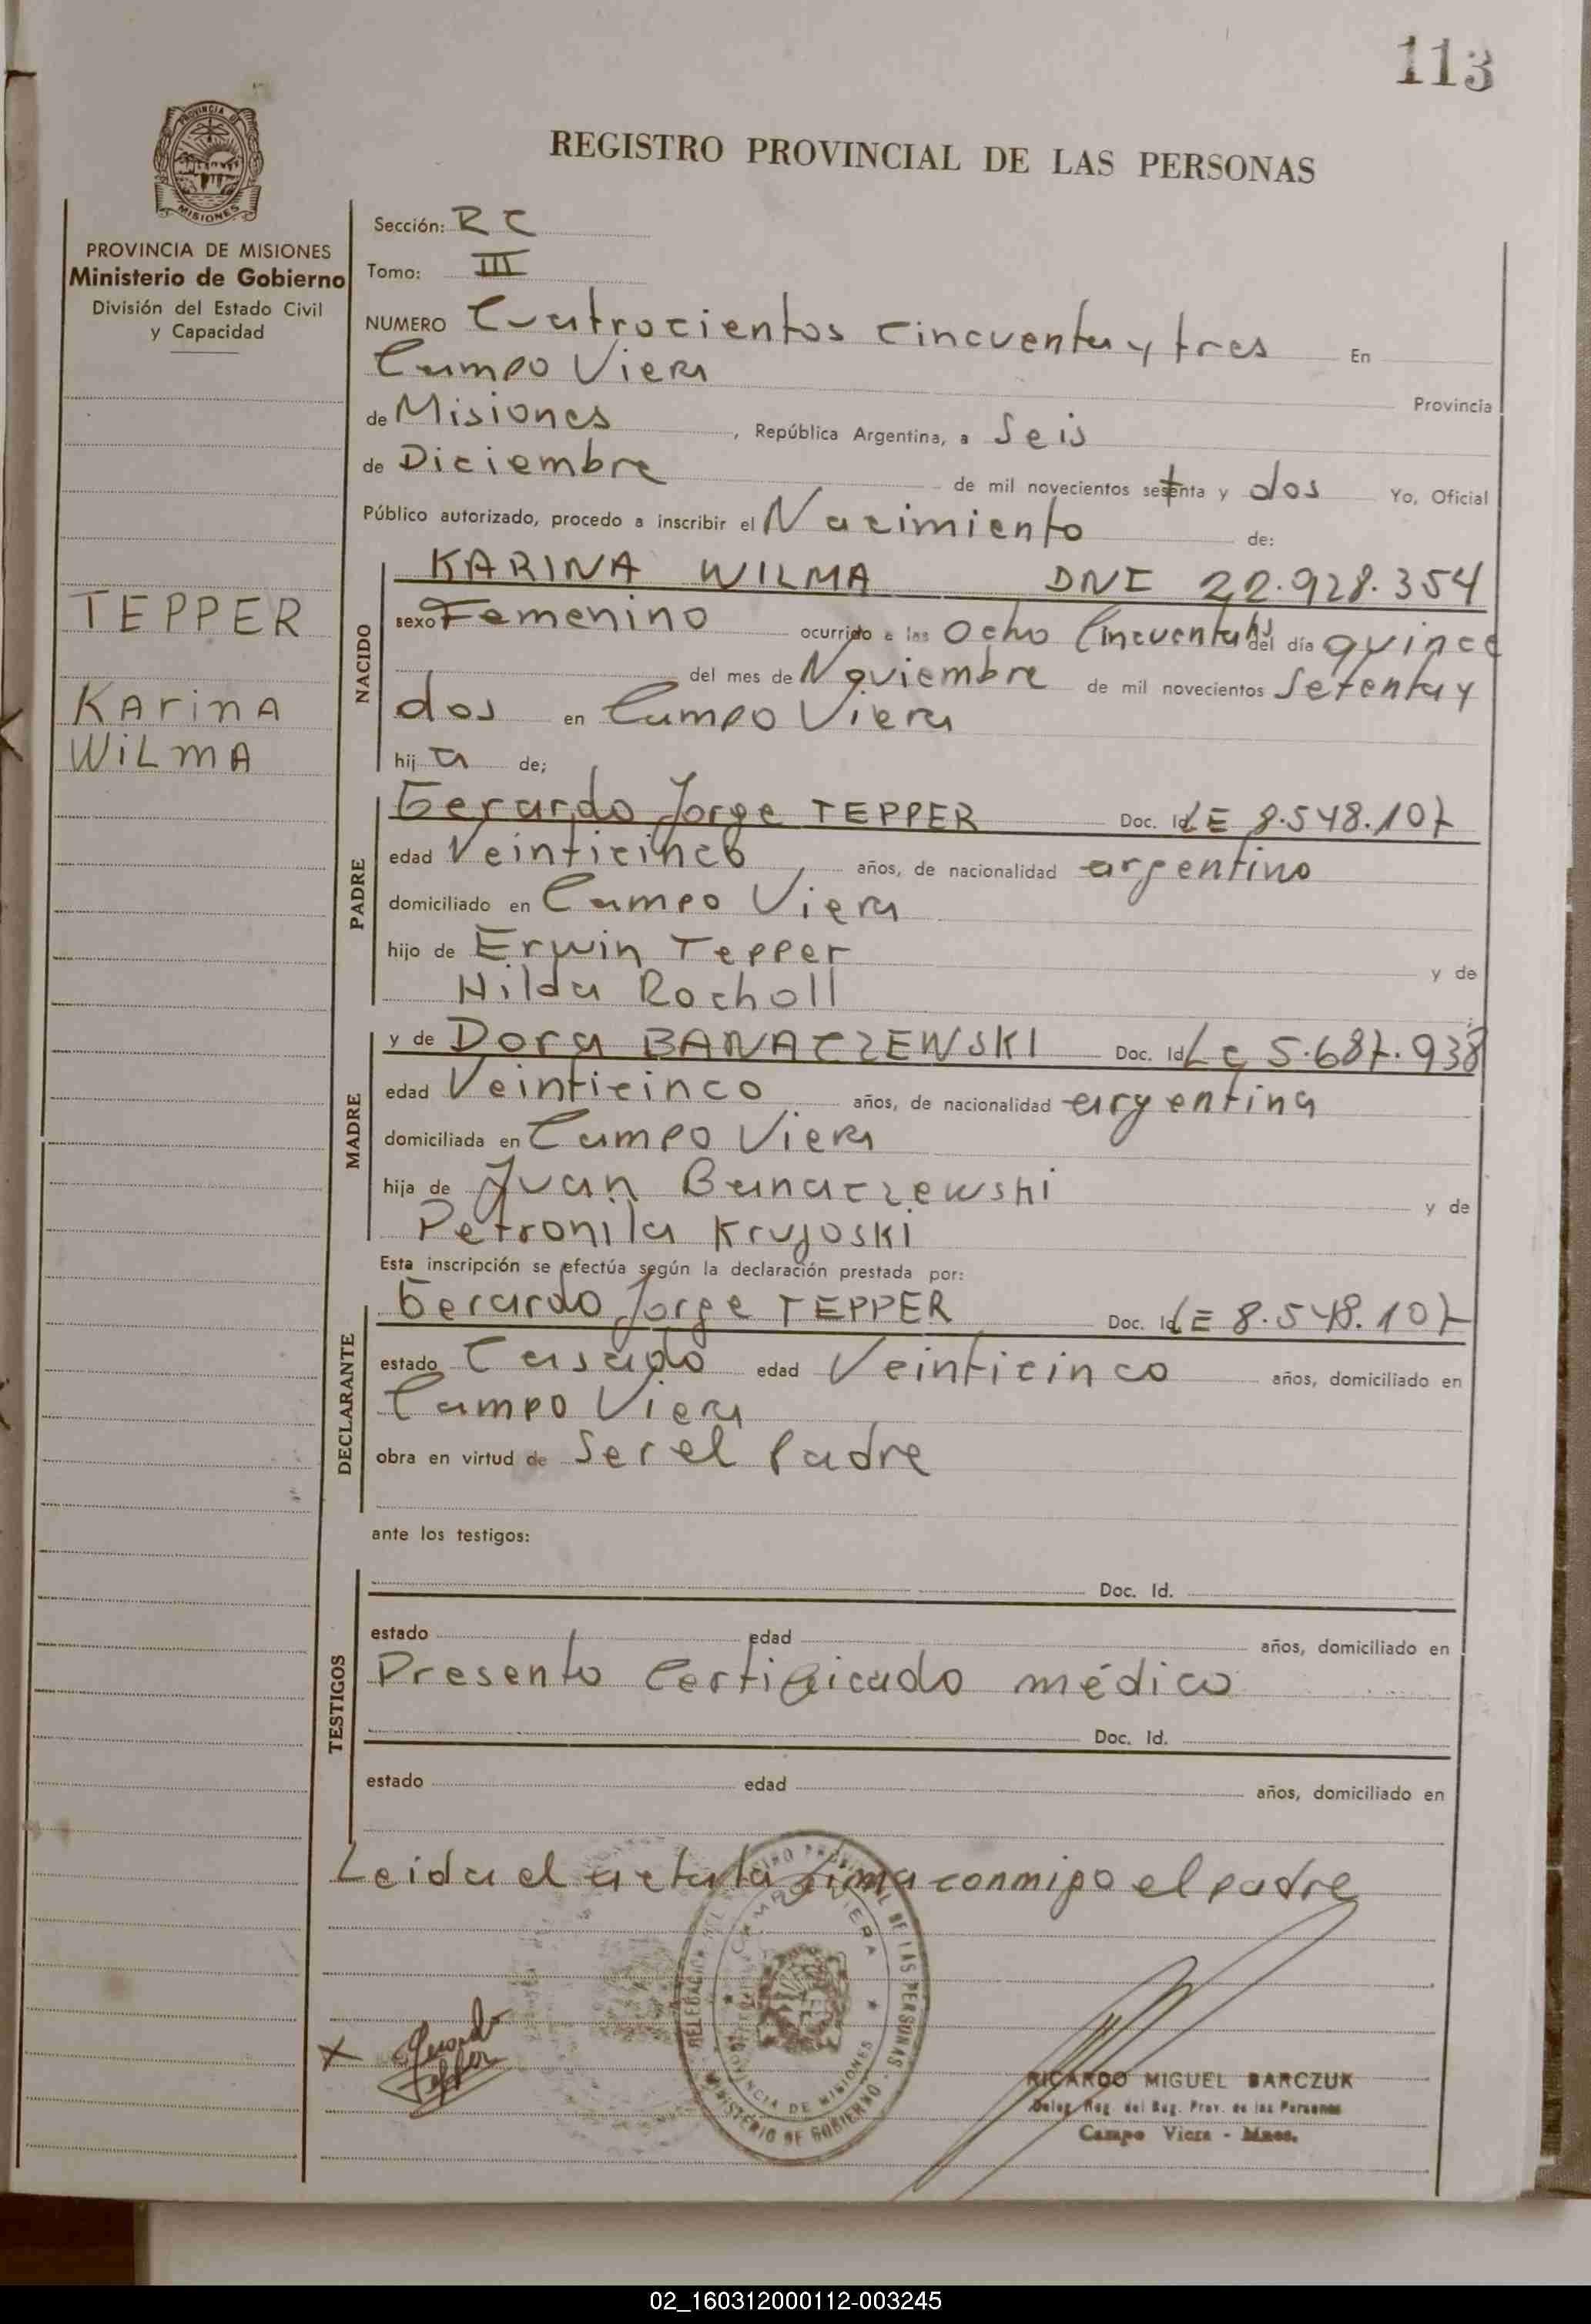 113
REGISTRO PROVINCIAL DE LAS PERSONAS
PROVINCIA DE MISIONES
Ministerio de Gobierno
División del Estado Civil
y Capacidad
TEPPER
KArinA
WiLmA
Sección: RC
Tomo: III
NUMERO Cuatrocientos cincuenta y tres En
Campo Viera Provincia
de Misiones, República Argentina, a Seis
de Diciembre de mil novecientos setenta y dos Yo, Oficial
Público autorizado, procedo a inscribir el Nacimiento de:
NACIDO
KARINA WILMA DNI 22.928.354
sexo Femenino ocurrido a las Ocho Cincuenta hs del día quince
del mes de Noviembre de mil novecientos Setenta y
dos en Campo Viera
hij a de;
PADRE
Gerardo Jorge TEPPER Doc. Id LE 8.548.107
edad Veinticinco años, de nacionalidad argentino
domiciliado en Campo Viera
hijo de Erwin Tepper y de
Hilda Rocholl
MADRE
y de Dora BANACZEWSKI Doc. Id LC 5.687.938
edad Veinticinco años, de nacionalidad argentina
domiciliada en Campo Viera
hija de Juan Banaczewski y de
Petronila Krujoski
Esta inscripción se efectúa según la declaración prestada por:
DECLARANTE
Gerardo Jorge TEPPER Doc. Id LE 8.548.107
estado Casado edad Veinticinco años, domiciliado en
Campo Viera
obra en virtud de Ser el Padre
ante los testigos:
TESTIGOS
Doc. Id.
estado edad años, domiciliado en
Presento Certificado médico
Doc. Id.
estado edad años, domiciliado en
Leida el acta la firma conmigo el padre
X Gerardo Tepper
DELEGACION DEL REGISTRO PROVINCIAL DE LAS PERSONAS
CAMPO VIERA
PROVINCIA DE MISIONES
MINISTERIO DE GOBIERNO
RICARDO MIGUEL BARCZUK
Deleg. Reg. del Reg. Prov. de las Personas
Campo Viera - Mnes.
02_160312000112-003245